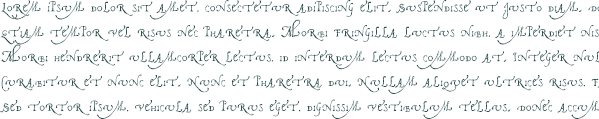 Lorem ipsum dolor sit amet, consectetur adipiscing elit. Suspendisse ut justo diam,
stiam tempor vel risus nec pharetra. Morbi fringilla luctus nibh, a imperdiet nis
Morbi hendrerit ullamcorper lectus, id interdum lectus commodo at. Integer nun
Curabitur et nunc elit. Nunc et pharetra dui. Nullam aliquet ultrices risus.
sed tortor ipsum, vehicula sed purus eget, dignissim vestibulum tellus. Donec accum